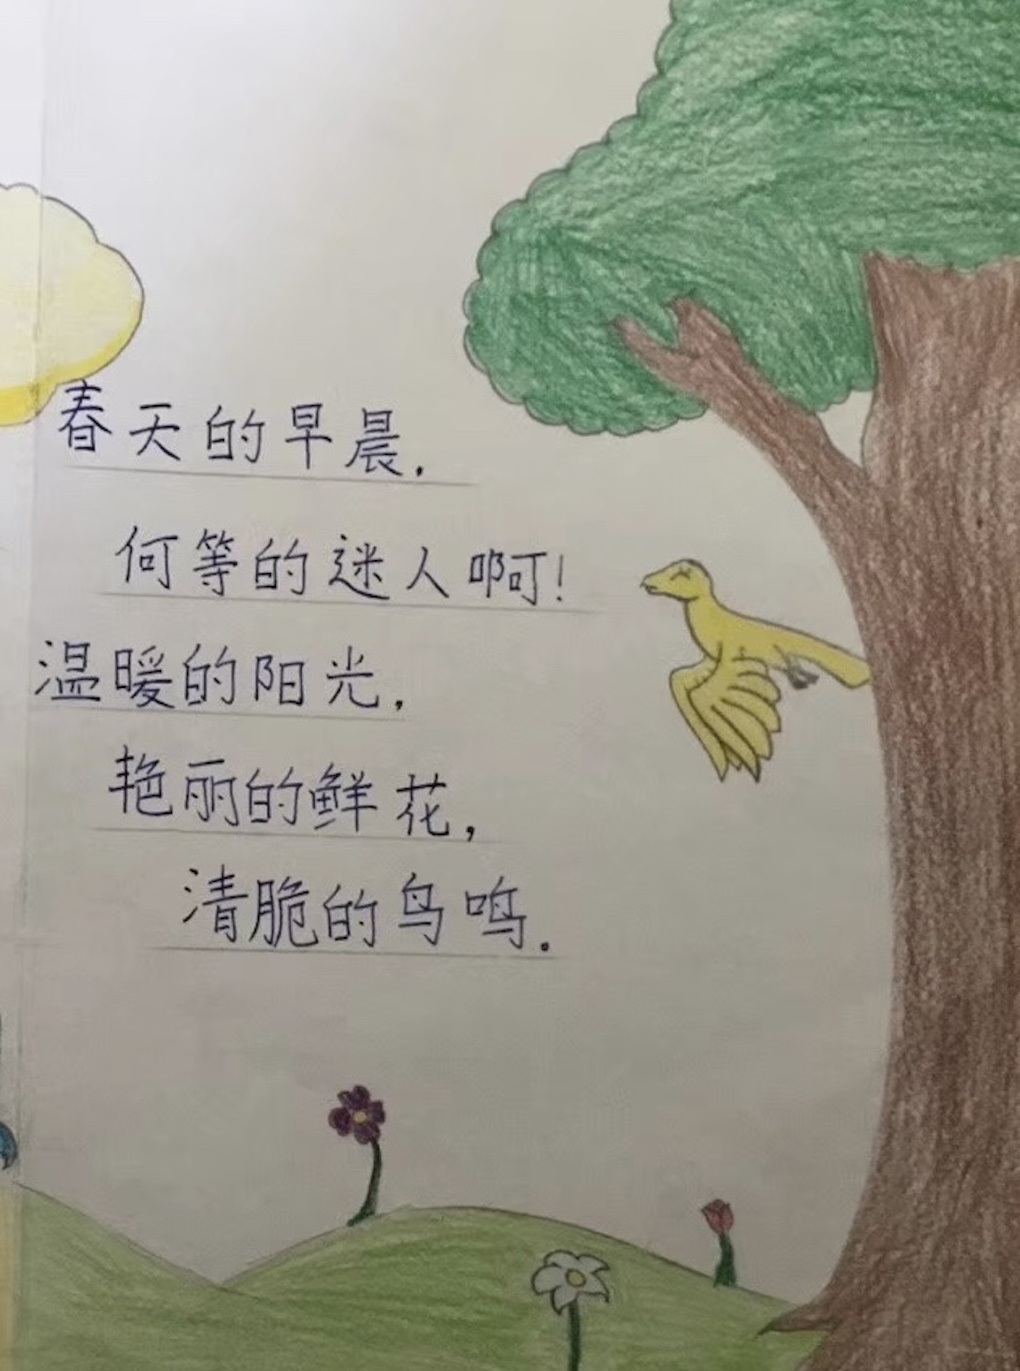 春天的早晨.
何等的迷人啊!
温暖的阳光,
艳丽的鲜花,
清脆的鸟鸣.